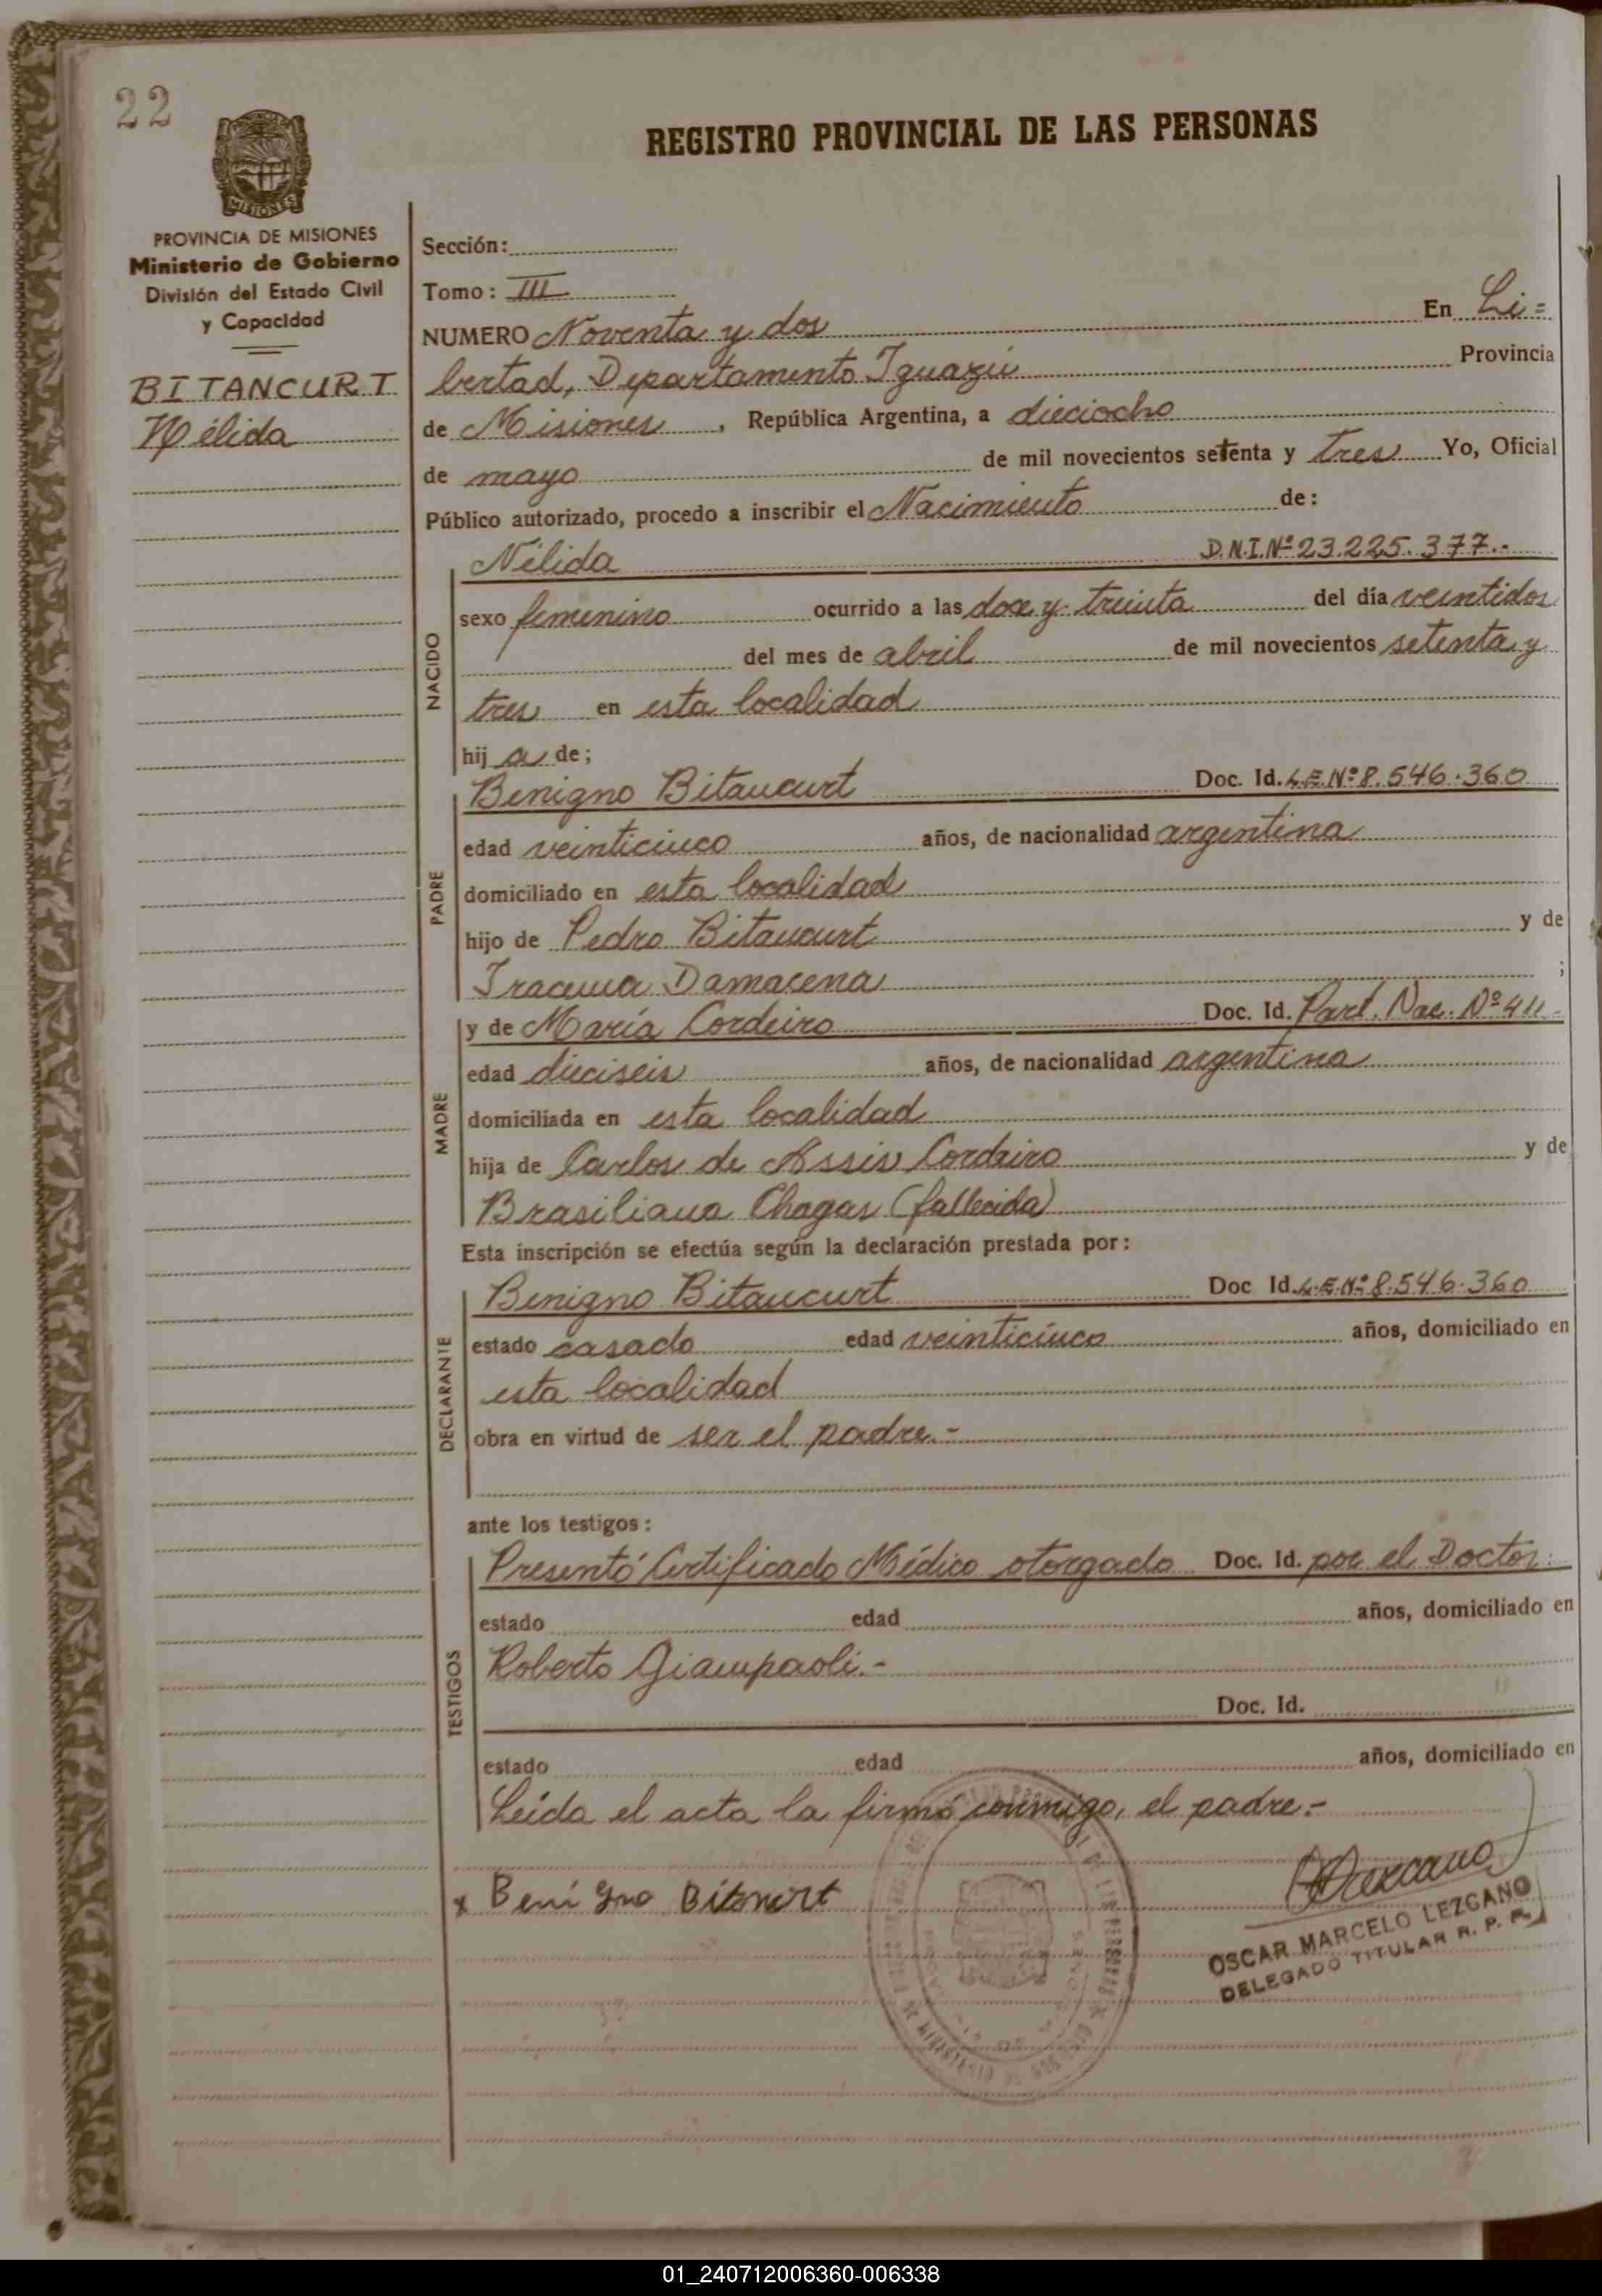 22
REGISTRO PROVINCIAL DE LAS PERSONAS
MISIONES
PROVINCIA DE MISIONES
Ministerio de Gobierno
División del Estado Civil
y Capacidad
BITANCURT
Nélida
Sección:
Tomo: III
NUMERO Noventa y dos En Li=
bertad, Departamento Iguazú Provincia
de Misiones, República Argentina, a dieciocho
de mayo de mil novecientos setenta y tres Yo, Oficial
Público autorizado, procedo a inscribir el Nacimiento de:
NACIDO
Nélida D.N.I.Nº 23.225.377.-
sexo femenino ocurrido a las doce y treinta del día veintidos
del mes de abril de mil novecientos setenta y
tres en esta localidad
hij a de;
PADRE
Benigno Bitancurt Doc. Id. L.E.Nº 8.546.360
edad veinticinco años, de nacionalidad argentina
domiciliado en esta localidad
hijo de Pedro Bitancurt y de
Iracema Damacena ;
MADRE
y de María Cordeiro Doc. Id. Part. Nac. Nº 411.-
edad dieciseis años, de nacionalidad argentina
domiciliada en esta localidad
hija de Carlos de Assis Cordeiro y de
Brasiliana Chagas (fallecida)
Esta inscripción se efectúa según la declaración prestada por:
DECLARANTE
Benigno Bitancurt Doc Id. L.E.Nº 8.546.360
estado casado edad veinticinco años, domiciliado en
esta localidad
obra en virtud de ser el padre.-
ante los testigos:
TESTIGOS
Presentó Certificado Médico otorgado Doc. Id. por el Doctor:
estado edad años, domiciliado en
Roberto Giampaoli.-
Doc. Id.
estado edad años, domiciliado en
Leída el acta la firmó conmigo, el padre.-
x Benigno Bitancurt
OSCAR MARCELO LEZCANO
DELEGADO TITULAR R. P. P.
01_240712006360-006338